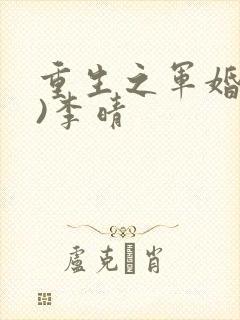 重生之军婚
)李晴
卢克 肖